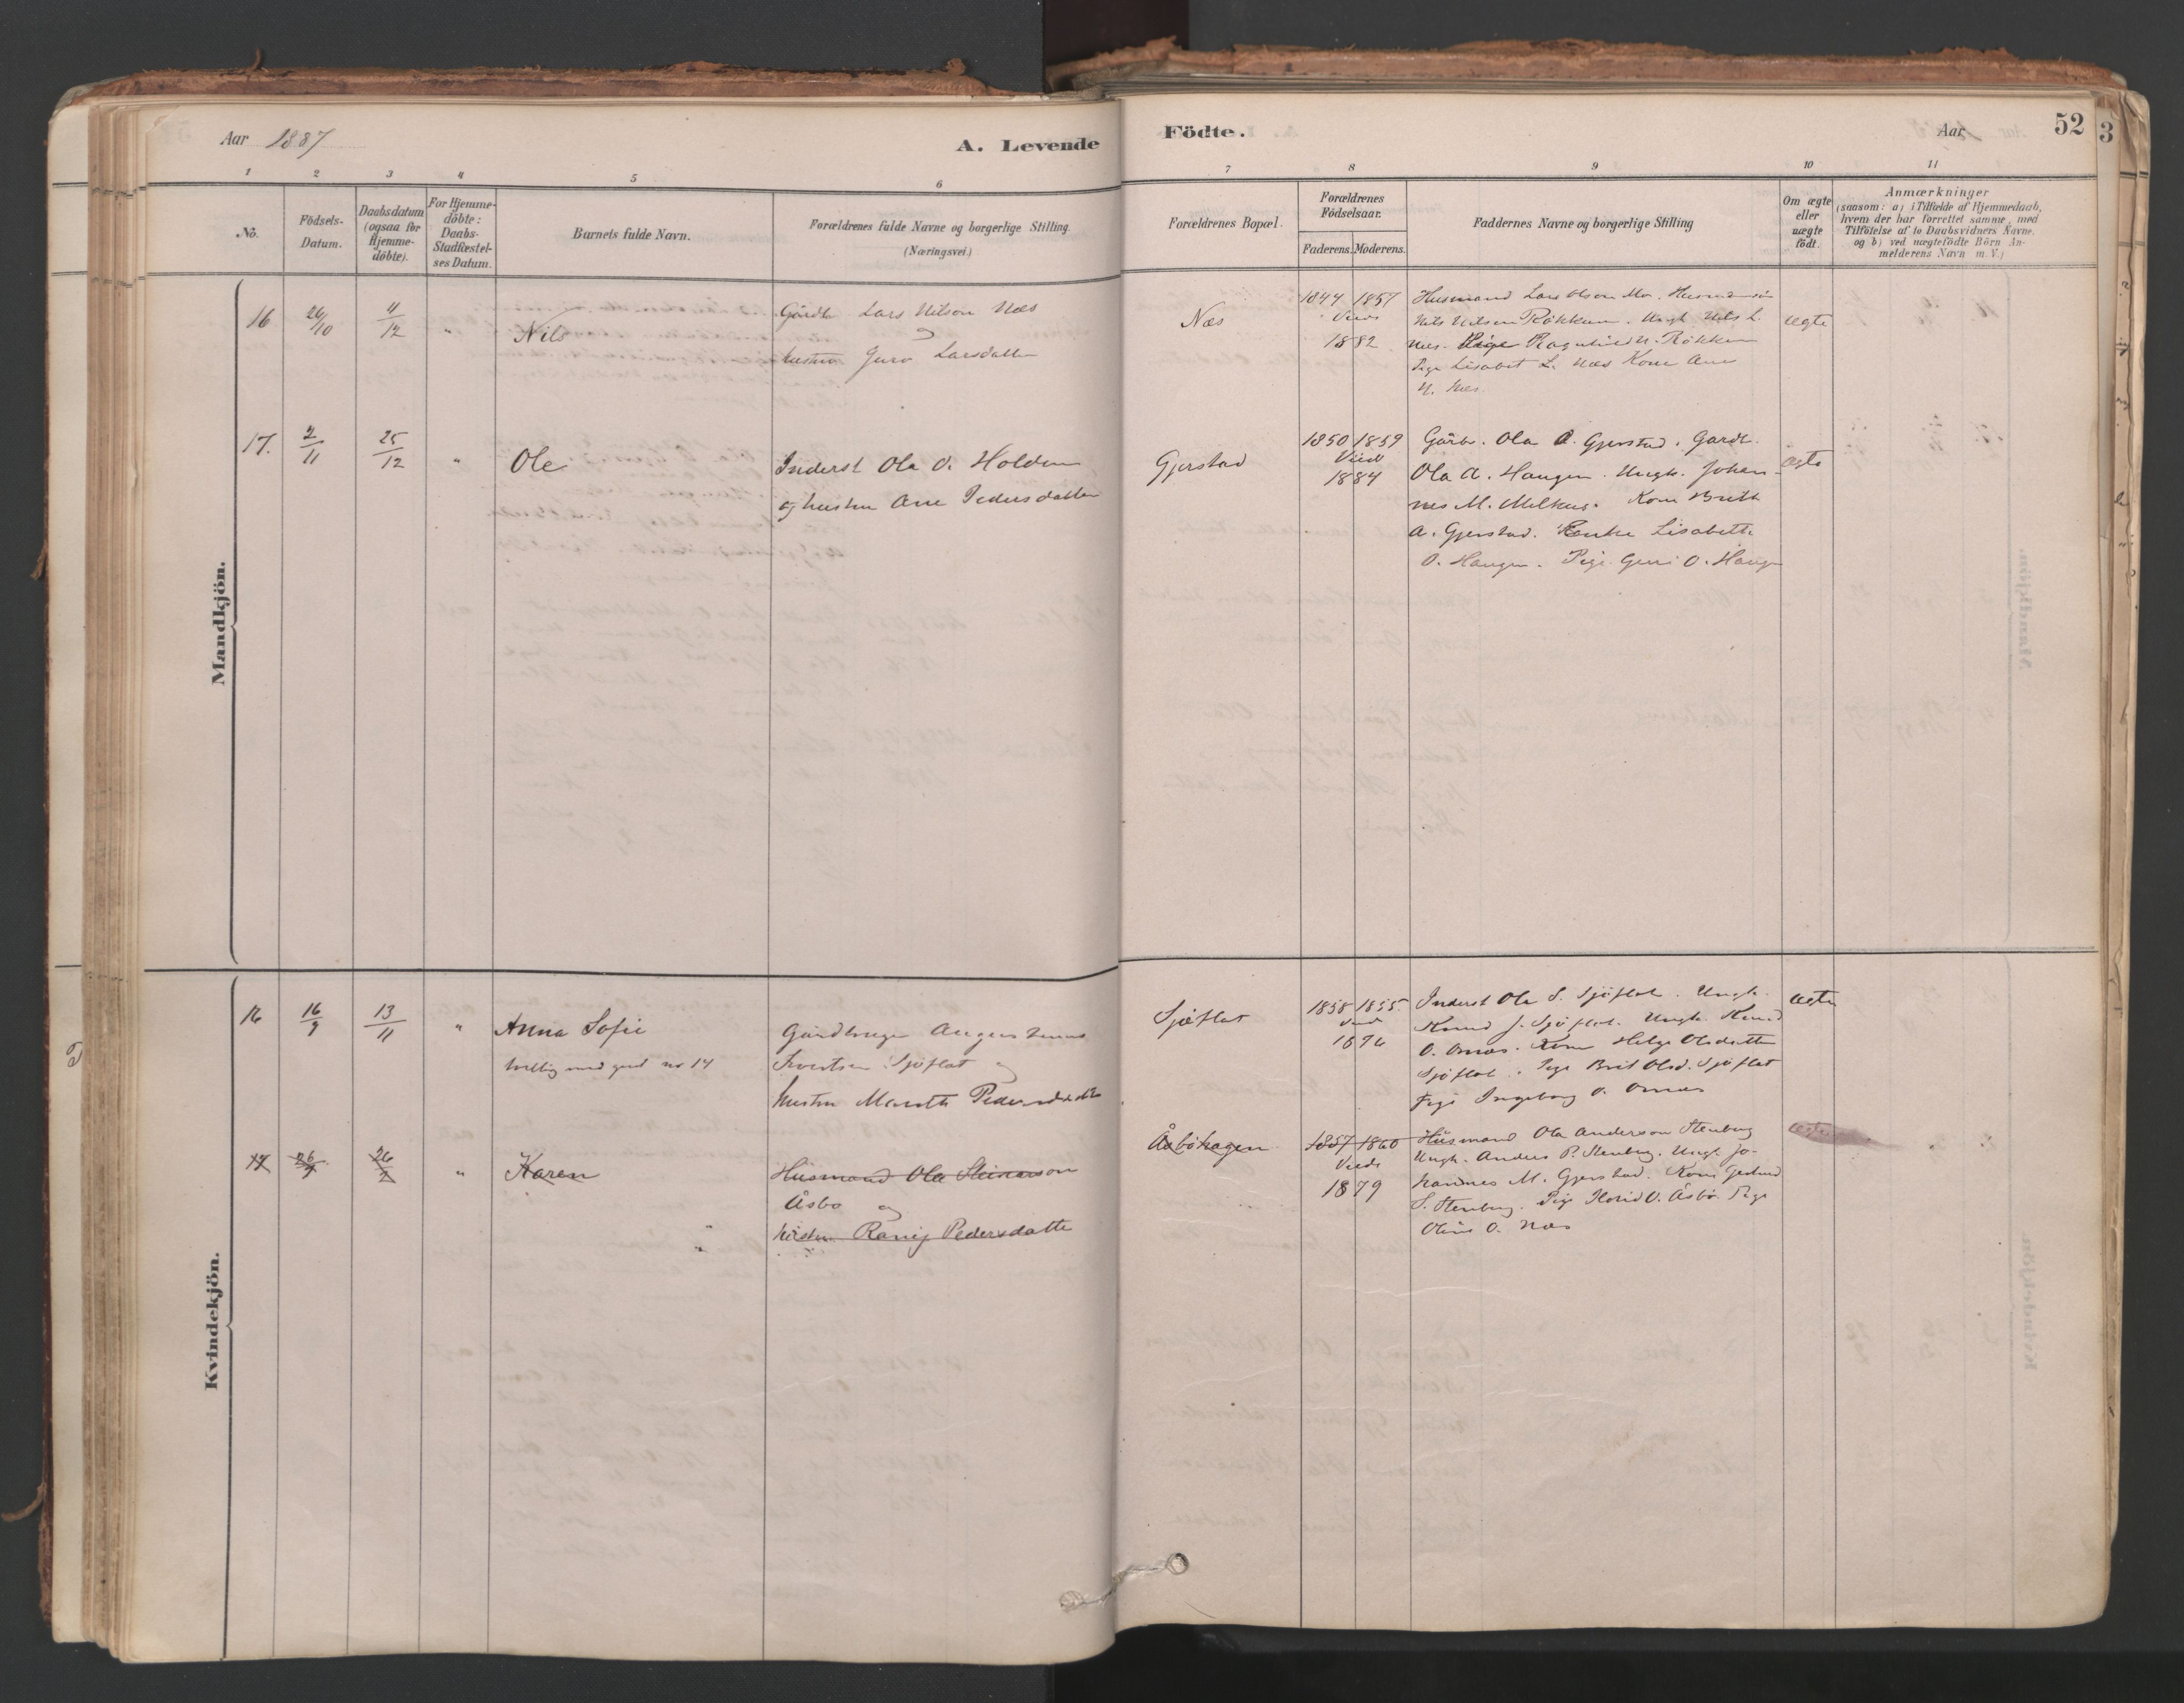 Aar 1887
A. Levende
Födte.
Aar
52
3
1 2 3 4 5 6 7 8 9 10 11
No.
Födsels-Datum.
Daabsdatum (ogsaa for Hjemme-döbte).
For Hjemme-döbte: Daabs-Stadfæstel-ses Datum.
Barnets fulde Navn.
Forældrenes fulde Navne og borgerlige Stilling.
(Næringsvei.)
Forældrenes Bopæl.
Forældrenes Födselsaar.
Faderens. Moderens.
Faddernes Navne og borgerlige Stilling
Om ægte eller uægte födt.
Anmærkninger
(saasom: a) i Tilfælde af Hjemmedaab,
hvem der har forrettet samme, med
Tilföielse af to Daabsvidners Navne,
og b) ved uægtefödte Börn An-
melderens Navn m. V.)
Mandkjön.
16 26/10 11/12 " Nils
Gårdb Lars Nilson Næs
hustru Guro Larsdatter
Næs
1844 1857
Viede
1882
Husmand Lars Olson Mo. Husmandssön
Nils Nilsen Rökkum. Ungk Nils L.
Næs. Pige Ragnhild N. Rökkum
Pige Lisabet L. Næs Kone Ane
N. Næs.
ægte
17. 2/11 25/12 " Ole
Inderst Ola O. Holden
og hustru Ane Pedersdatter
Gjerstad
1850 1859
Vied
1884
Gårb. Ola A. Gjerstad. Gardb.
Ola A. Haugen. Ungk. Johan-
nes M. Melkus. Kone Brith
A. Gjerstad. Enke Lisabeth
O. Haugen. Pige Guri O. Haugen
ægte
Kvindekjön.
16 16/9 13/11 " Anna Sofie
tvilling med gud no 14
Gårdbruger Augustinus
Sivertsen Sjöflot og
hustru Marith Pedersdatter
Sjöflot
1858 1855.
Vied
1876
Inderst Ola S. Sjöflot. Ungk.
Knud J. Sjöflot. Ungk. Knud
O. Ornæs. Kone Helge Olsdatter
Sjöflot. Pige Brit Olsd. Sjöflot
Pige Ingeborg O. Ornæs
ægte
17 26/9 26/2 " Karen
Husmand Ola Steinarson
Åsbö og
hustru Ranig Pedersdatte
Åsböhagen
1857 1860
Viede
1879
Husmand Ola Anderson Stenberg
Ungk. Anders P. Stenberg. Ungk. Jo-
hannes M. Gjerstad. Kone Gjertrud
S. Stenberg. Pige Torid O. Åsbö. Pige
Oline O. Næs
ægte